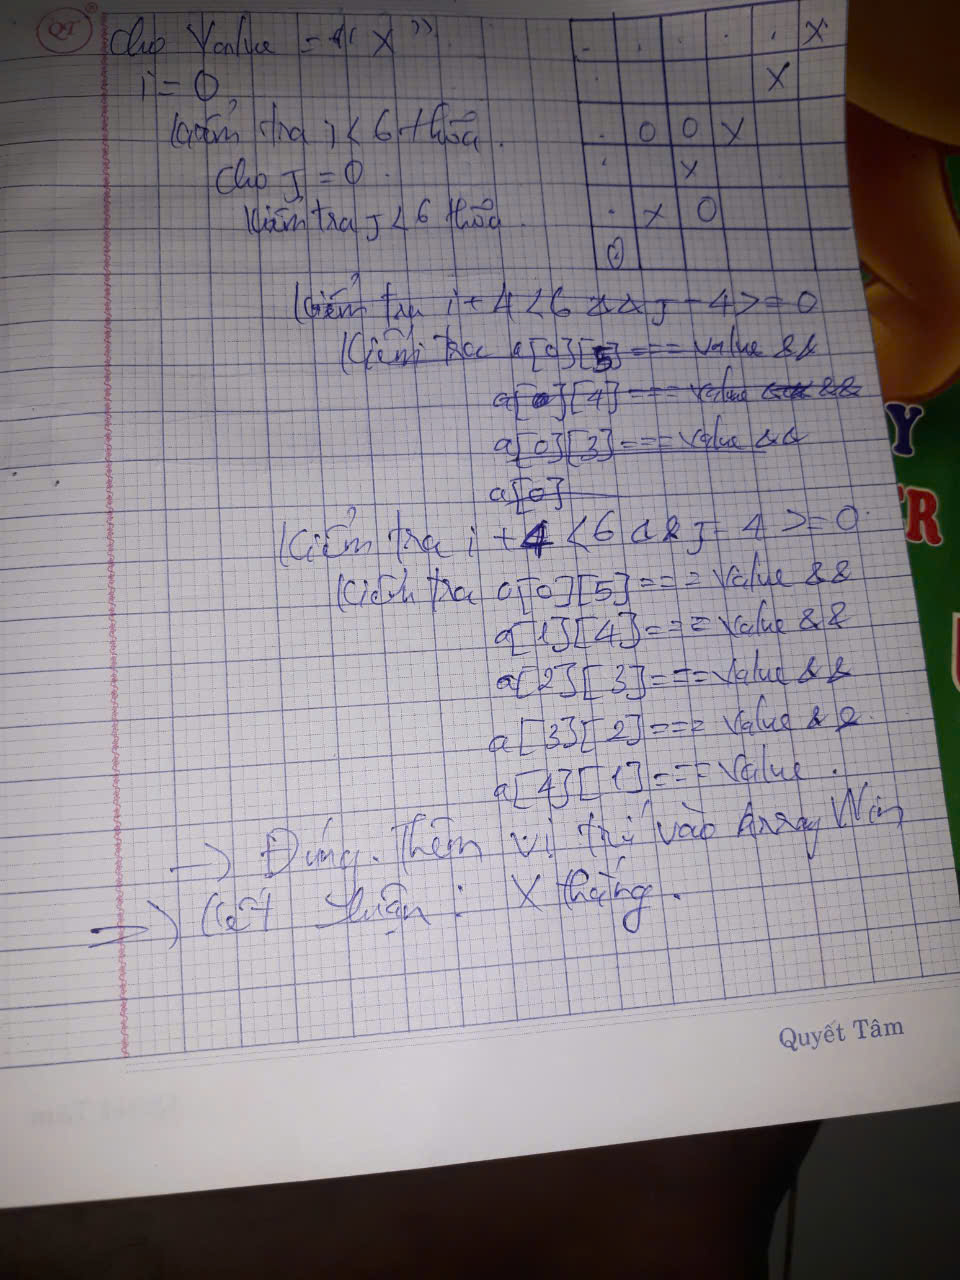 QT
Cho Value = "X"
i = 0
Kiểm tra i < 6 thỏa.
Cho j = 0.
Kiểm tra j < 6 thỏa.
. . . . . X
. X
. O O X
. X
. X O
O
Kiểm tra i + 4 < 6 && j - 4 >= 0
Kiểm tra a[0][5] === Value &&
a[0][4] === Value &&
a[0][3] === Value &&
a[0]
Kiểm tra i + 4 < 6 && j - 4 >= 0.
Kiểm tra a[0][5] === Value &&
a[1][4] === Value &&
a[2][3] === Value &&
a[3][2] === Value &&.
a[4][1] === Value.
-> Đúng. Thêm vị trí vào Array Win
=> Kết luận: X thắng.
Quyết Tâm